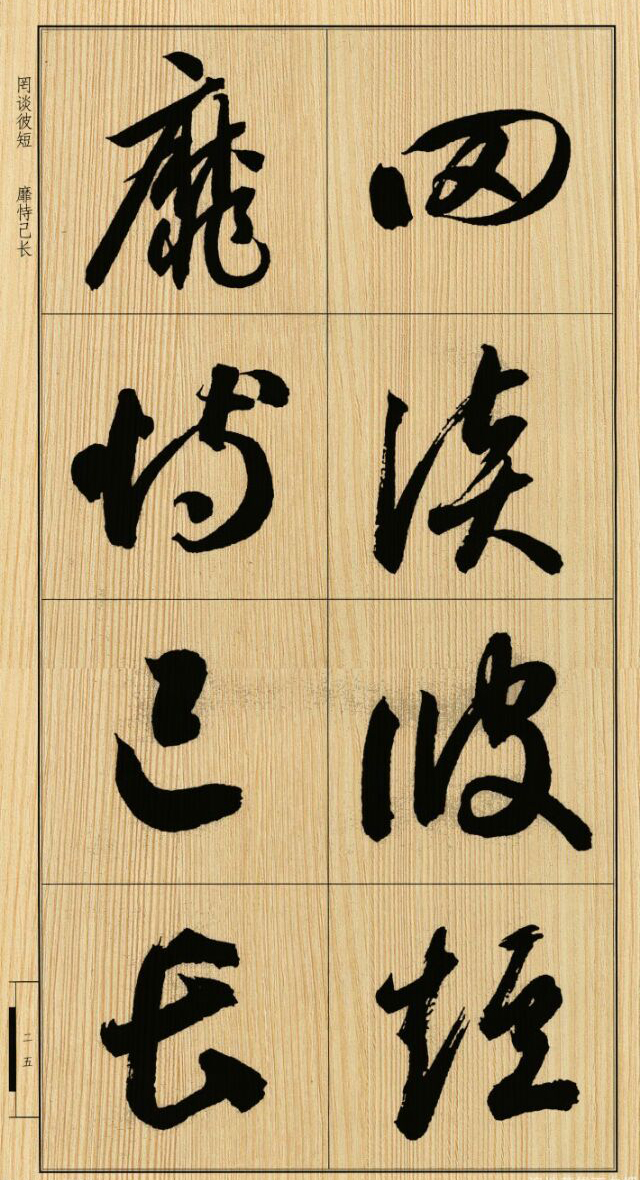 罔谈彼短
靡恃己长
罔谈彼短 靡恃己长
二五